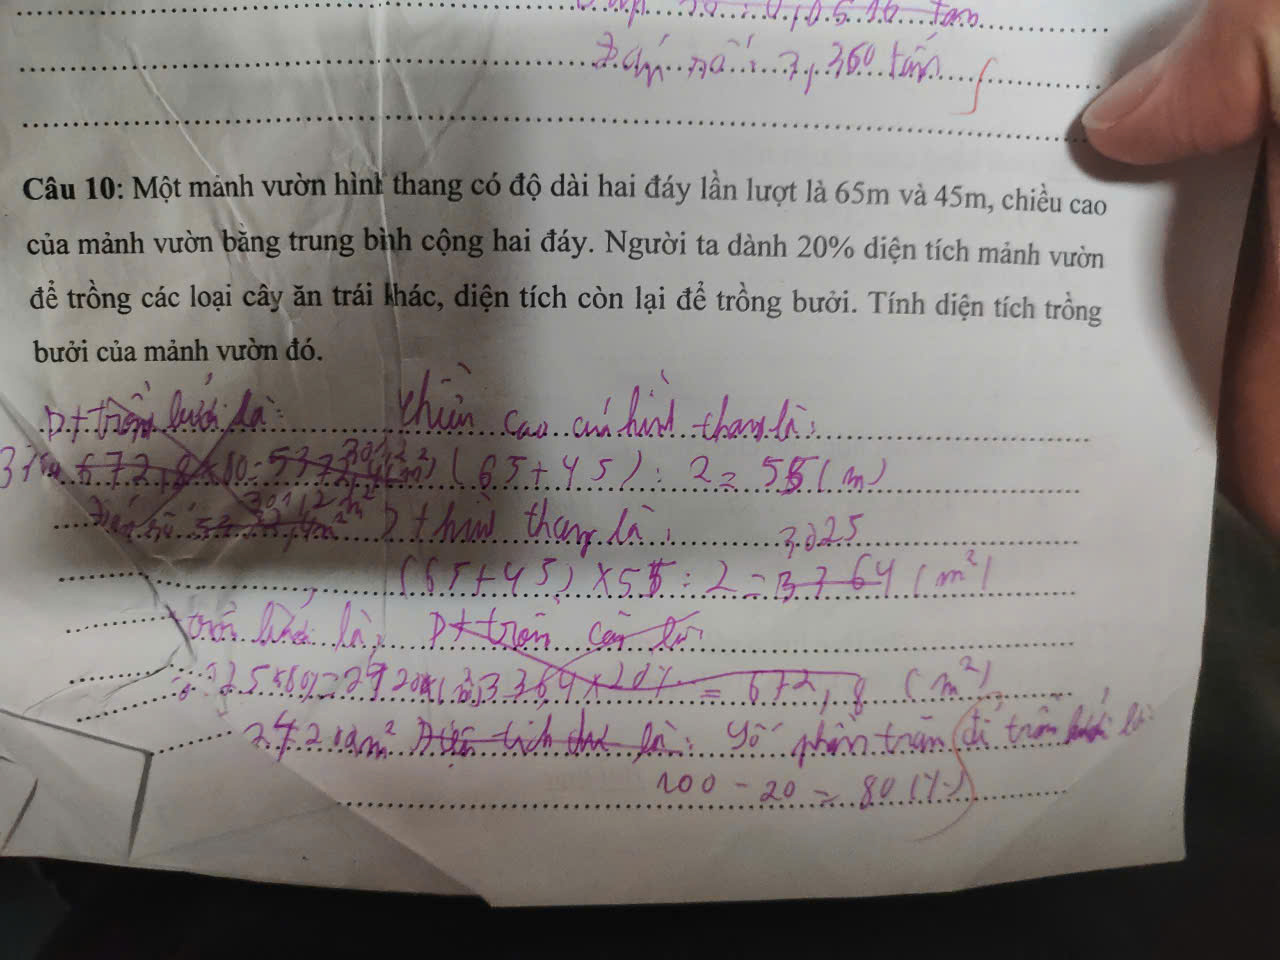 Đáp số: 7,360 tấn
Câu 10: Một mảnh vườn hình thang có độ dài hai đáy lần lượt là 65m và 45m, chiều cao
của mảnh vườn bằng trung bình cộng hai đáy. Người ta dành 20% diện tích mảnh vườn
để trồng các loại cây ăn trái khác, diện tích còn lại để trồng bưởi. Tính diện tích trồng
bưởi của mảnh vườn đó.
Dt trồng bưởi là: chiều cao của hình thang là:
672,8 × 80 = (65+45) : 2 = 55 (m)
Dt hình thang là: 3,025
(65+45) × 55 : 2 = 3764 (m²)
trồng bưởi là: Dt trồng cây là:
3364 × 20% = 672,8 (m²)
2420 m² Diện tích là: Số phần trăm để trồng bưởi là:
100 - 20 = 80 (%)